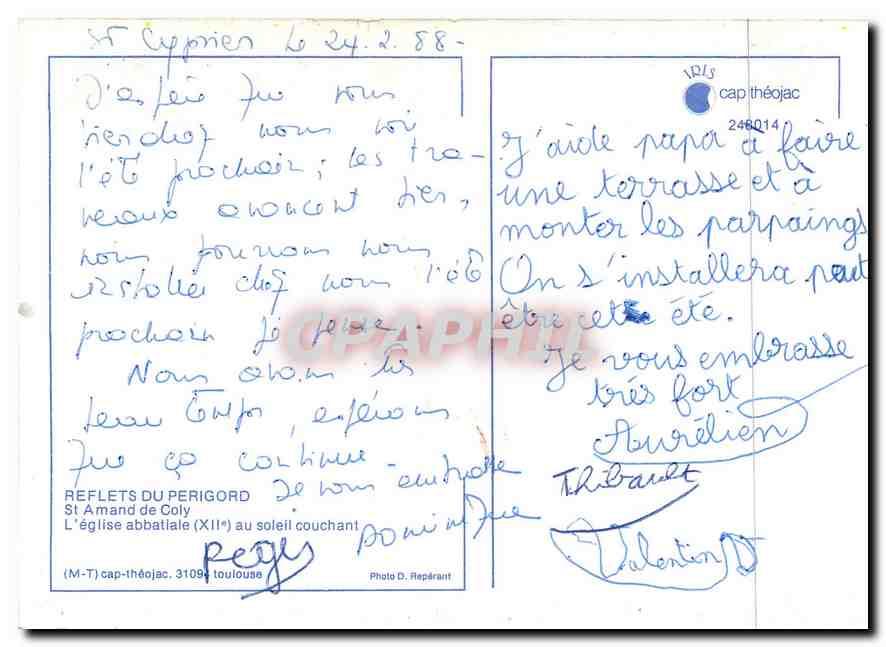 St Cyprien Le 24.2.88-
J'espère que vous
viendrez nous voir
l'été prochain; les tra-
vaux avancent bien,
nous pourrons nous
installer chez nous l'été
prochain je pense.
Nous avons très
beau temps, espérons
que ça continue -
Je vous embrasse
Dominique
Regis
REFLETS DU PERIGORD
St Amand de Coly
L'église abbatiale (XIIe) au soleil couchant
(M-T) cap-théojac, 31094 toulouse
Photo D. Repérant
IRIS
cap théojac
248014
J'aide papa à faire
une terrasse et à
monter les parpaings
On s'installera peut
être cet été.
Je vous embrasse
très fort
Aurélien
Thibault
Valentin D
CPAPHIL